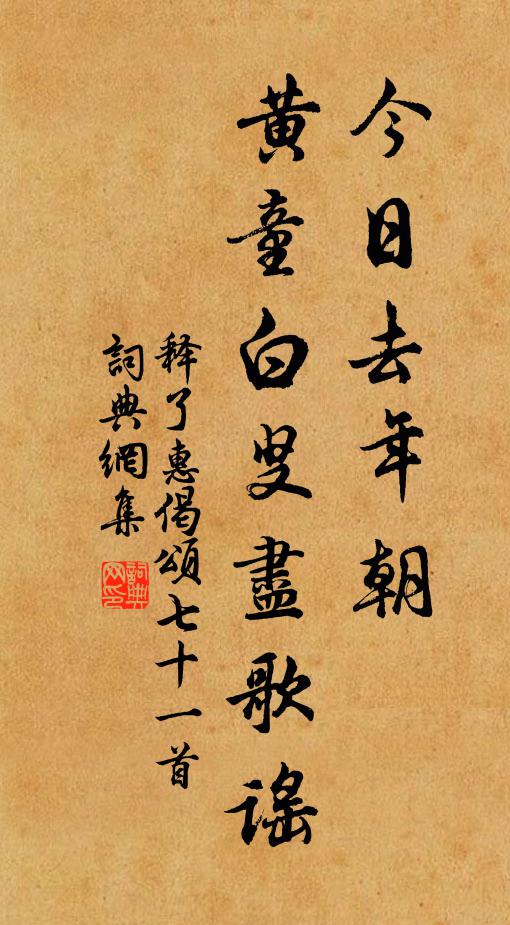 今日去年朝
黄童白叟盡歌謡
释了惠偈頌七十一首
詞典網集
詞典网印